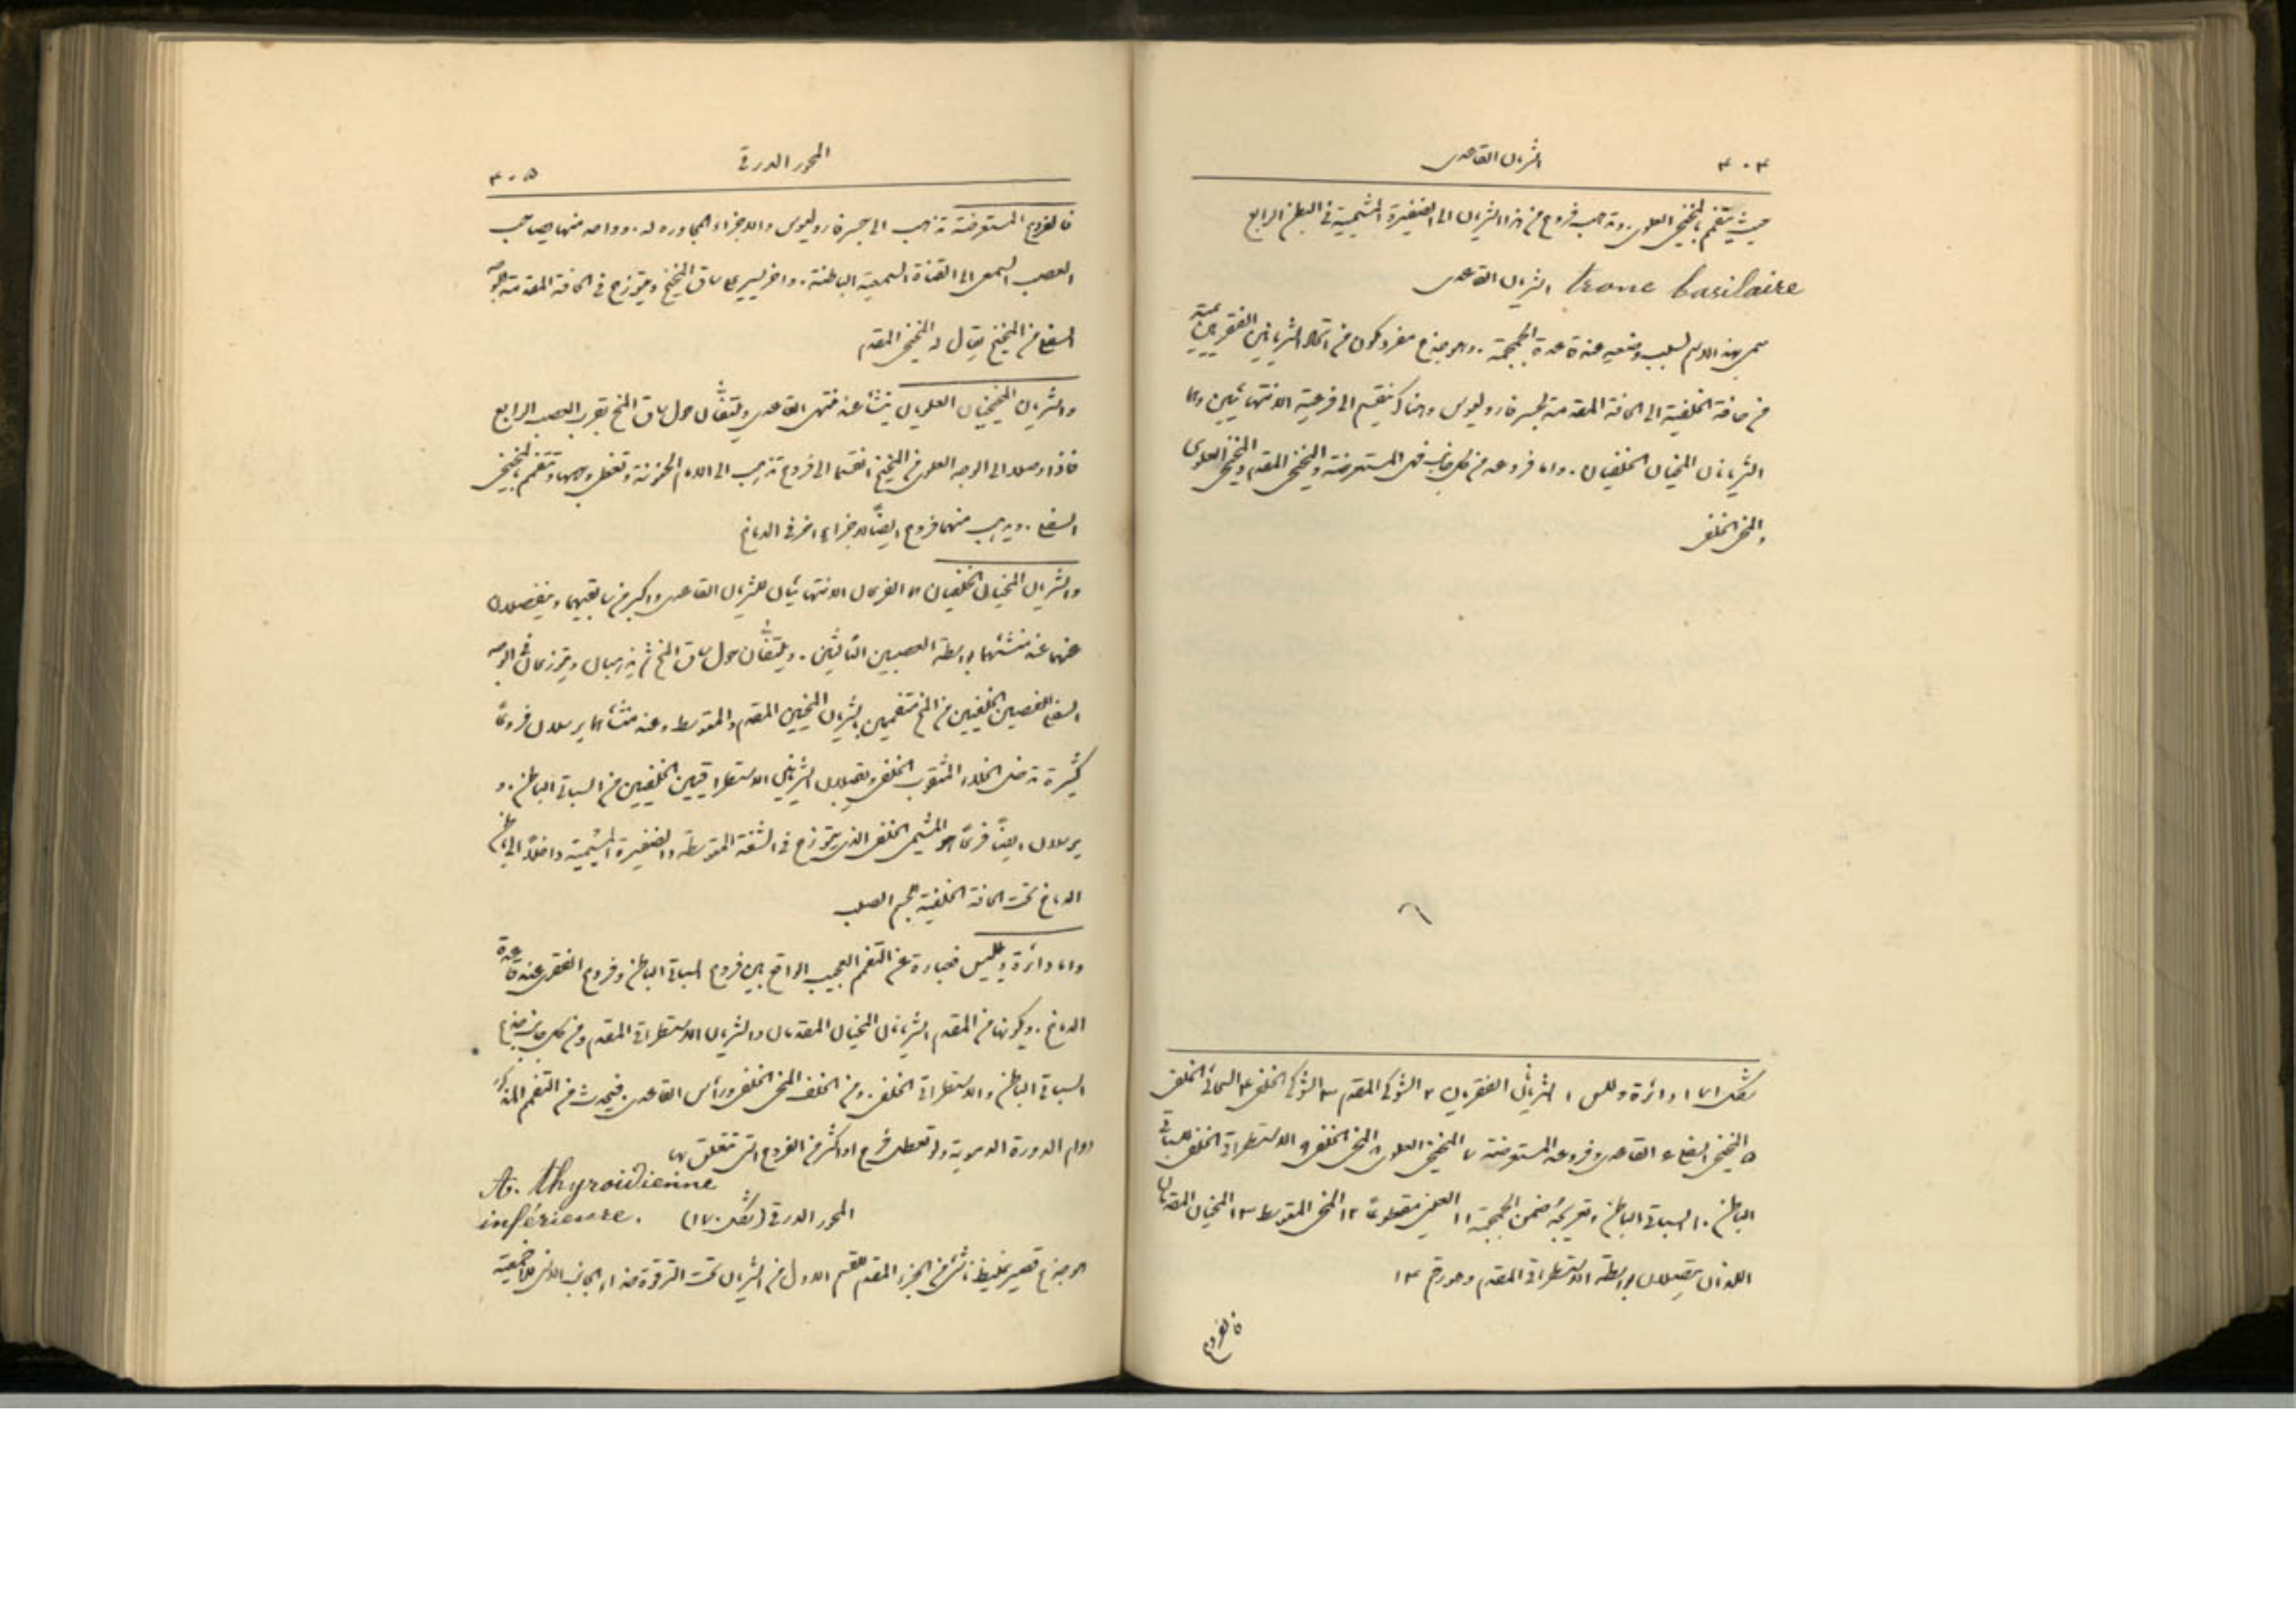 ٤٠٤ الشريان القاعدى
حيث يتفمم بالمخيخى العلوى. وتذهب فروع من هذا الشريان الى الضفيرة المشيمية فى البطن الرابع
tronc basilaire الشريان القاعدى
سمى بهذا الاسم لسبب وضعيه عند قاعدة الجمجمة. وهو جذع مفرد مكون من اتحاد الشريانين الفقريين يمتد
من حافة الخلفية الى الحافة المقدمة لجسر فاروليوس وهناك ينقسم الى فرعيه الانتهائيين وهما
الشريانان المخيان الخلفيان. واما فروعه من كل جانب فهى المستعرضة والمخيخى المقدم والمخيخى العلوى
والمخى الخلفى
شكل ١٧١ دائرة وللس ١ الشريانان الفقريان ٢ الشوكى المقدم ٣ الشوكى الخلفى ٤ السحائى الخلفى
٥ المخيخى السفلى ٦ القاعدى وفروعه المستعرضة ٧ المخيخى العلوى ٨ المخى الخلفى ٩ الاستطراقى الخلفى للسباتى
الباطن ١٠ السباتى الباطن وتعريجه ضمن الجمجمة ١١ العينى مقطوعًا ١٢ المخى المتوسط ١٣ المخيان المقدمان
اللذان يتصلان بواسطة الاستطراقى المقدم وهو رقم ١٤
فالفروع
المحور الدرقى ٤٠٥
فالفروع المستعرضة تذهب الى جسر فاروليوس والاجزاء المجاورة له. وواحد منها يصاحب
العصب السمعى الى القناة السمعية الباطنة. واخر يسير على ساق المخيخ ويتوزع فى الحافة المقدمة للوجه
السفلى من المخيخ يقال له المخيخى المقدم
والشريانان المخيخيان العلويان ينشأ عند منتهى القاعدى ويلتفان حول ساق المخ بقرب العصب الرابع
فاذا وصلا الى الوجه العلوى من المخيخ انقسما الى فروع تذهب الى الام الحنونة وتغطى وجهها وتتفمم بالمخيخى
السفلى. ويذهب منهما فروع ايضًا لاجزاء اخر فى الدماغ
والشريانان المخيان الخلفيان هما الفرعان الانتهائيان للشريان القاعدى واكبر من سابقيهما وينفصلان
عنهما عند منشئهما بواسطة العصبين الثالثين. ويلتفان حول ساق المخ ثم يذهبان ويتوزعان فى الوجه
السفلى للفصين الخلفيين من المخ متفممين بالشريان المخيين المقدم والمتوسط وعند منشأهما يرسلان فروعًا
كثيرة تدخل الخلاء المثقوب الخلفى ويقبلان الشريانين الاستطراقيين الخلفيين من السباتى الباطن. و
يرسلان ايضًا فرعًا هو المشيمى الخلفى الذى يتوزع فى الشقة المتوسطة والضفيرة المشيمية داخلًا الى باطن
الدماغ تحت الحافة الخلفية للجسم الصلب
واما دائرة وللس فعبارة عن التفمم العجيب الواقع بين فروع السباتى الباطن وفروع الفقرى عند قاعدة
الدماغ. ويكونها من المقدم الشريانان المخيان المقدمان والشريان الاستطراقى المقدم ومن كل جانب جذع
السباتى الباطن والاستطراقى الخلفى. ومن الخلف المخى الخلفى ورأس القاعدى. فيحدث من التفمم المذكور
دوام الدورة الدموية ولو تعطل فرع او اكثر من الفروع التى تتعلق بها
A. thyroïdienne
inférieure. المحور الدرقى (شكل ١٧٠)
هو جذع قصير غليظ ناشئ من الجزء المقدم للقسم الاول من الشريان تحت الترقوة حذاء الجانب الانسى للاخمعية